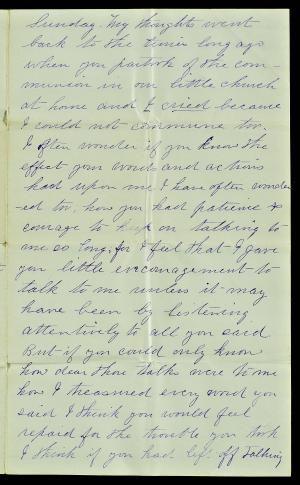 Sunday. My thoughts went
back to the times long ago
when you partook of the com-
munion in our little church
at home and I cried because
I could not commune too.
I often wonder if you know the
effect your words and actions
had upon me I have often wonder
-ed too, how you had patience &
courage to keep on talking to
me so long, for I feel that I gave
you little encouragement to
talk to me unless it may
have been by listening
attentively to all you said
But if you could only know
how dear those talks were to me
how I treasured every word you
said I think you would feel
repaid for the trouble you took
I think if you had left off talking